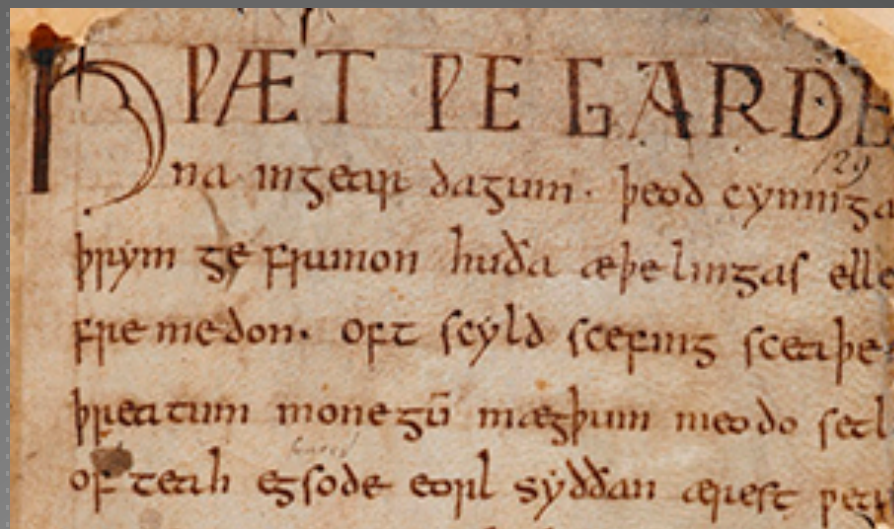 HǷÆT ǷE GARDE
na ingear dagum · þeod cyninga
þrym ge frunon huða æþelingas elle
fremedon · oft scyld scefing sceaþe
þreatum monegū mægþum meodo setl
of teah egsode eorl syððan ærest
129